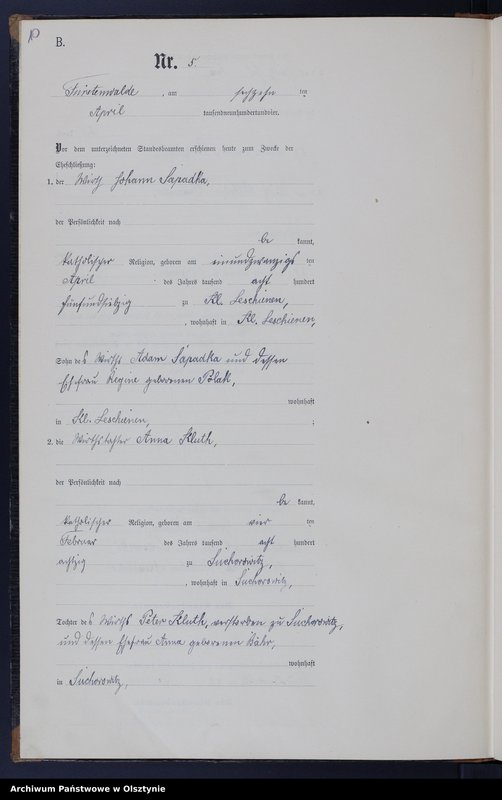 B.
Nr. 5.
Fürstenwalde, am sechzehn ten
April tausendneunhundertundvier.
Vor dem unterzeichneten Standesbeamten erschienen heute zum Zwecke der
Eheschließung:
1. der Wirth Johann Sapadka,
der Persönlichkeit nach
be kannt,
katholischer Religion, geboren am einundzwanzigs ten
April des Jahres tausend acht hundert
fünfundsiebzig zu Kl. Leschienen,
, wohnhaft in Kl. Leschienen,
Sohn des Wirths Adam Sapadka und dessen
Ehefrau Regine geborenen Polak,
wohnhaft
in Kl. Leschienen, ;
2. die Wirthstochter Anna Kluth,
der Persönlichkeit nach
be kannt,
katholischer Religion, geboren am vier ten
Februar des Jahres tausend acht hundert
achtzig zu Suchorowitz,
, wohnhaft in Suchorowitz,
Tochter des Wirths Peter Kluth, verstorben zu Suchorowitz,
und dessen Ehefrau Anna geborenen Bähr,
wohnhaft
in Suchorowitz,
Archiwum Państwowe w Olsztynie